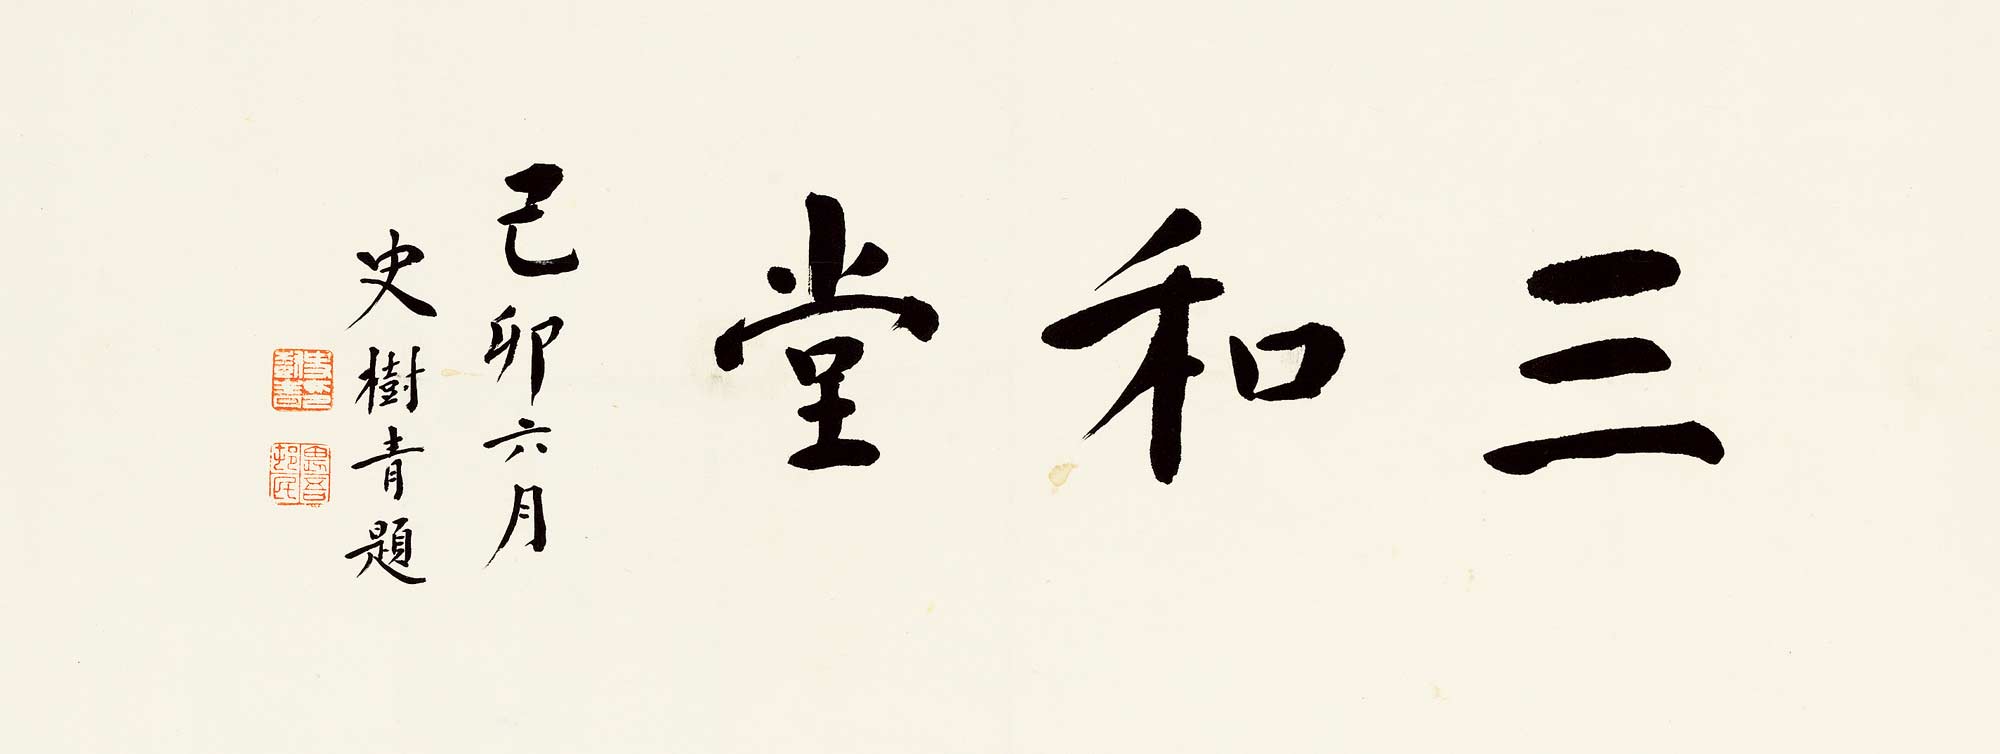 三和堂
己卯六月
史樹青題